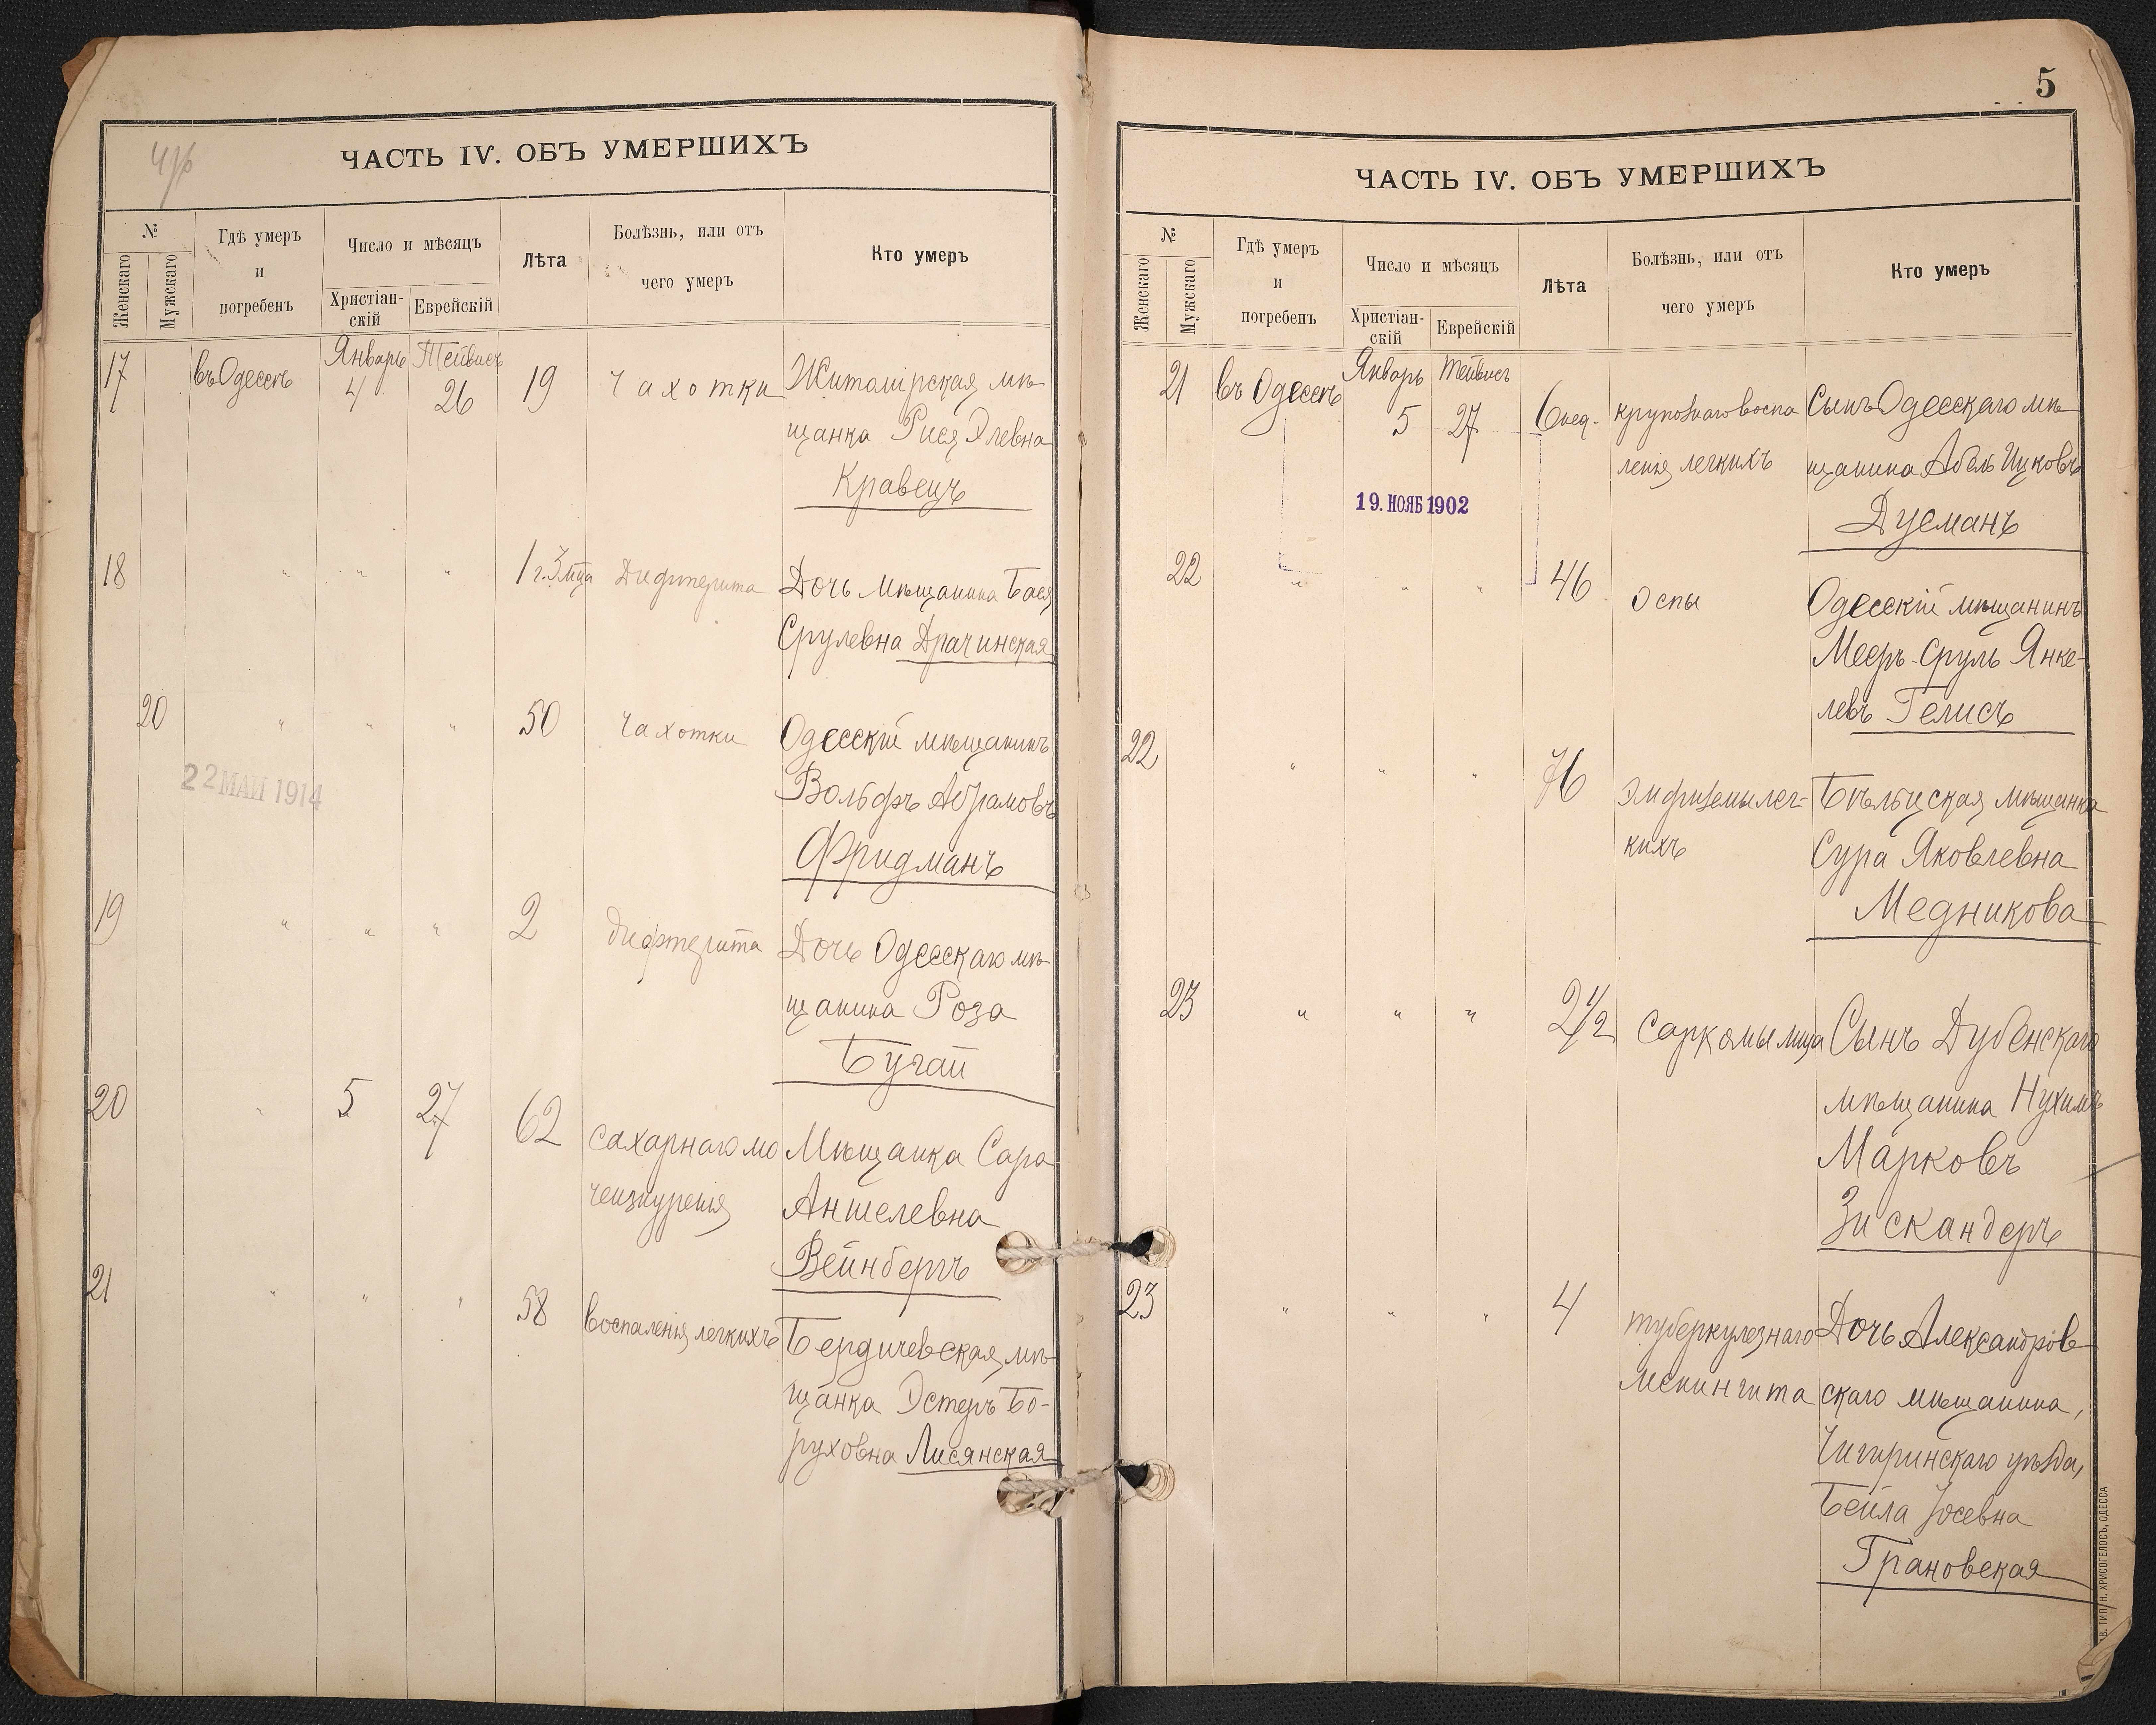 4/б
ЧАСТЬ IV. ОБЪ УМЕРШИХЪ
№
Женскаго
Мужскаго
Гдѣ умеръ
и
погребенъ
Число и мѣсяцъ
Христіан-
скій
Еврейскій
Лѣта
Болѣзнь, или отъ
чего умеръ
Кто умеръ
17 въ Одессѣ Январь 4 Тейвисъ 26 19 Чахотки Житомірская мѣ
щанка Рися Элевна
Кравецъ
18 " " " 1 г. 3 мца Дифтерита Дочь мѣщанина Бася
Срулевна Драчинская
20 " " " 50 Чахотки Одесскій мѣщанинъ
Вольфъ Абрамовъ
Фридманъ
22 МАЙ 1914
19 " " " 2 дифтерита Дочь Одесскаго мѣ
щанина Роза
Бугай
20 " 5 27 62 сахарнаго мо Мѣщанка Сара
чеизнуренія Аншелевна
Вейнбергъ
21 " " " 58 воспаленія легкихъ Бердичевская мѣ
щанка Эстеръ Бо-
руховна Лисянская
5
ЧАСТЬ IV. ОБЪ УМЕРШИХЪ
№
Женскаго
Мужскаго
Гдѣ умеръ
и
погребенъ
Число и мѣсяцъ
Христіан-
скій
Еврейскій
Лѣта
Болѣзнь, или отъ
чего умеръ
Кто умеръ
21 въ Одессѣ Январь 5 Тейвисъ 27 6 нед. крупознаго воспа Сынъ Одесскаго мѣ
ленія легкихъ щанина Абель Ицковъ
Дусманъ
19. НОЯБ 1902
22 " " " 46 Оспы Одесскій мѣщанинъ
Мееръ-Сруль Янке-
левъ Гелисъ
22 " " " 76 Эмфиземы лег- Бѣльцская мѣщанка
кихъ Сура Яковлевна
Медникова
23 " " " 2 1/2 Саркомы лица Сынъ Дубенскаго
мѣщанина Нухимъ
Марковъ
Зискандеръ
23 " " " 4 туберкулезнаго Дочь Александров
менингита скаго мѣщанина,
Чигиринскаго уѣзда,
Бейла Іосевна
Грановская
ТИП. Н. ХРИСОГЕЛОСЪ, ОДЕССА